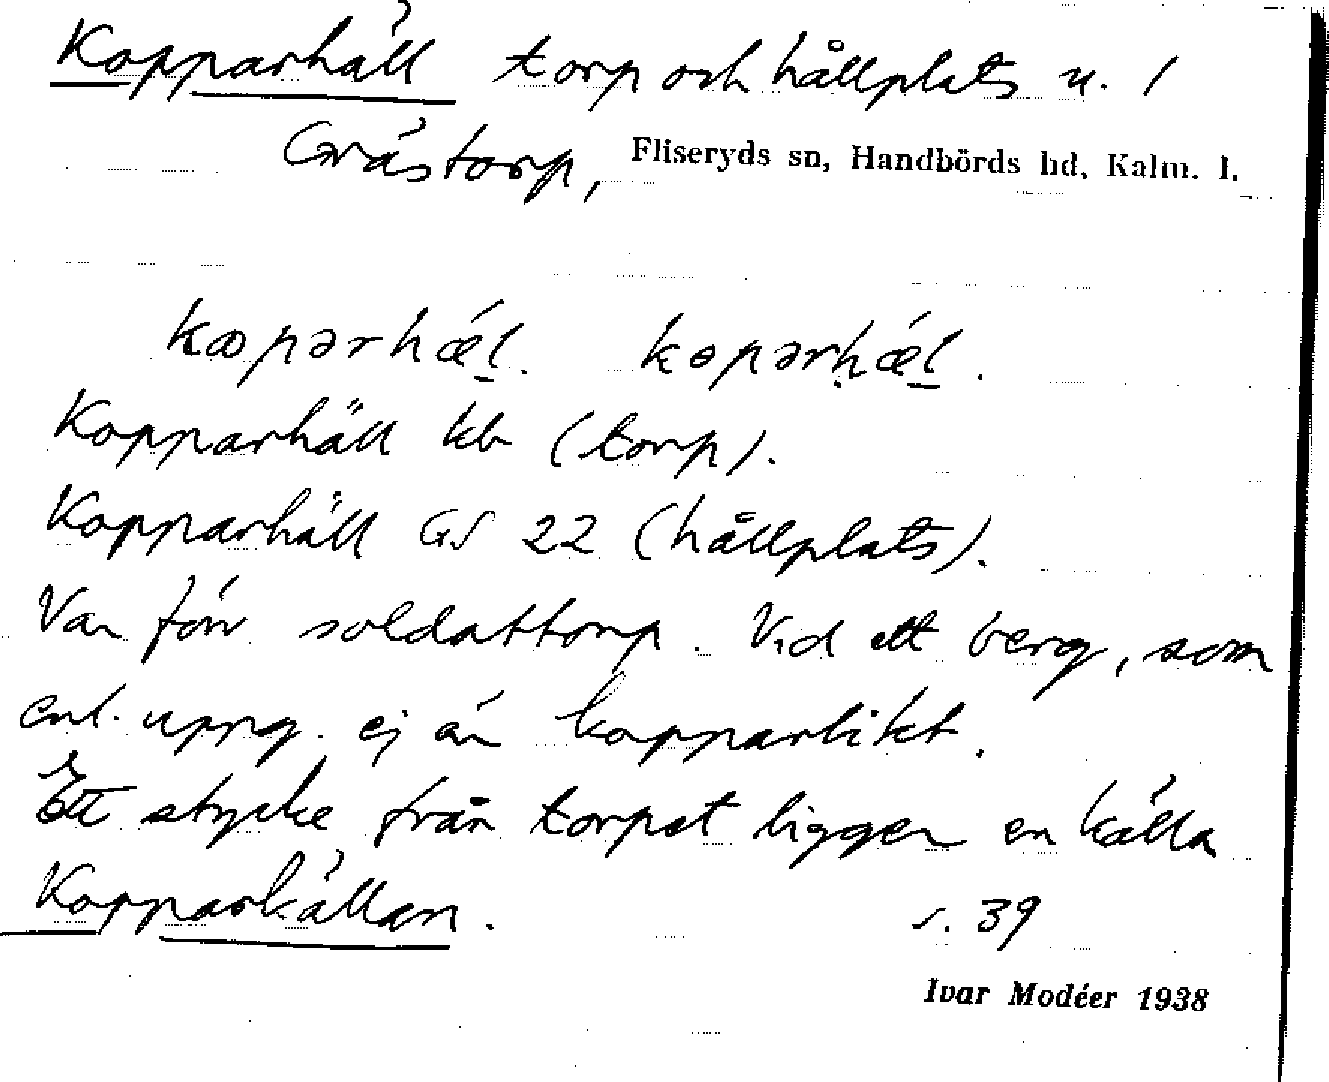 Kopparhäll torp och hållplats u. 1
Gråstorp, Fliseryds sn, Handbörds hd, Kalm. l.
kopərhæ̀l. kopərhæ̀l.
Kopparhäll kb (torp).
Kopparhäll GS 22 (hållplats).
Var förr soldattorp. Vid ett berg, som
enl. uppg. ej är kopparlikt.
Ett stycke från torpet ligger en källa
Kopparkällan. s. 39
Ivar Modéer 1938